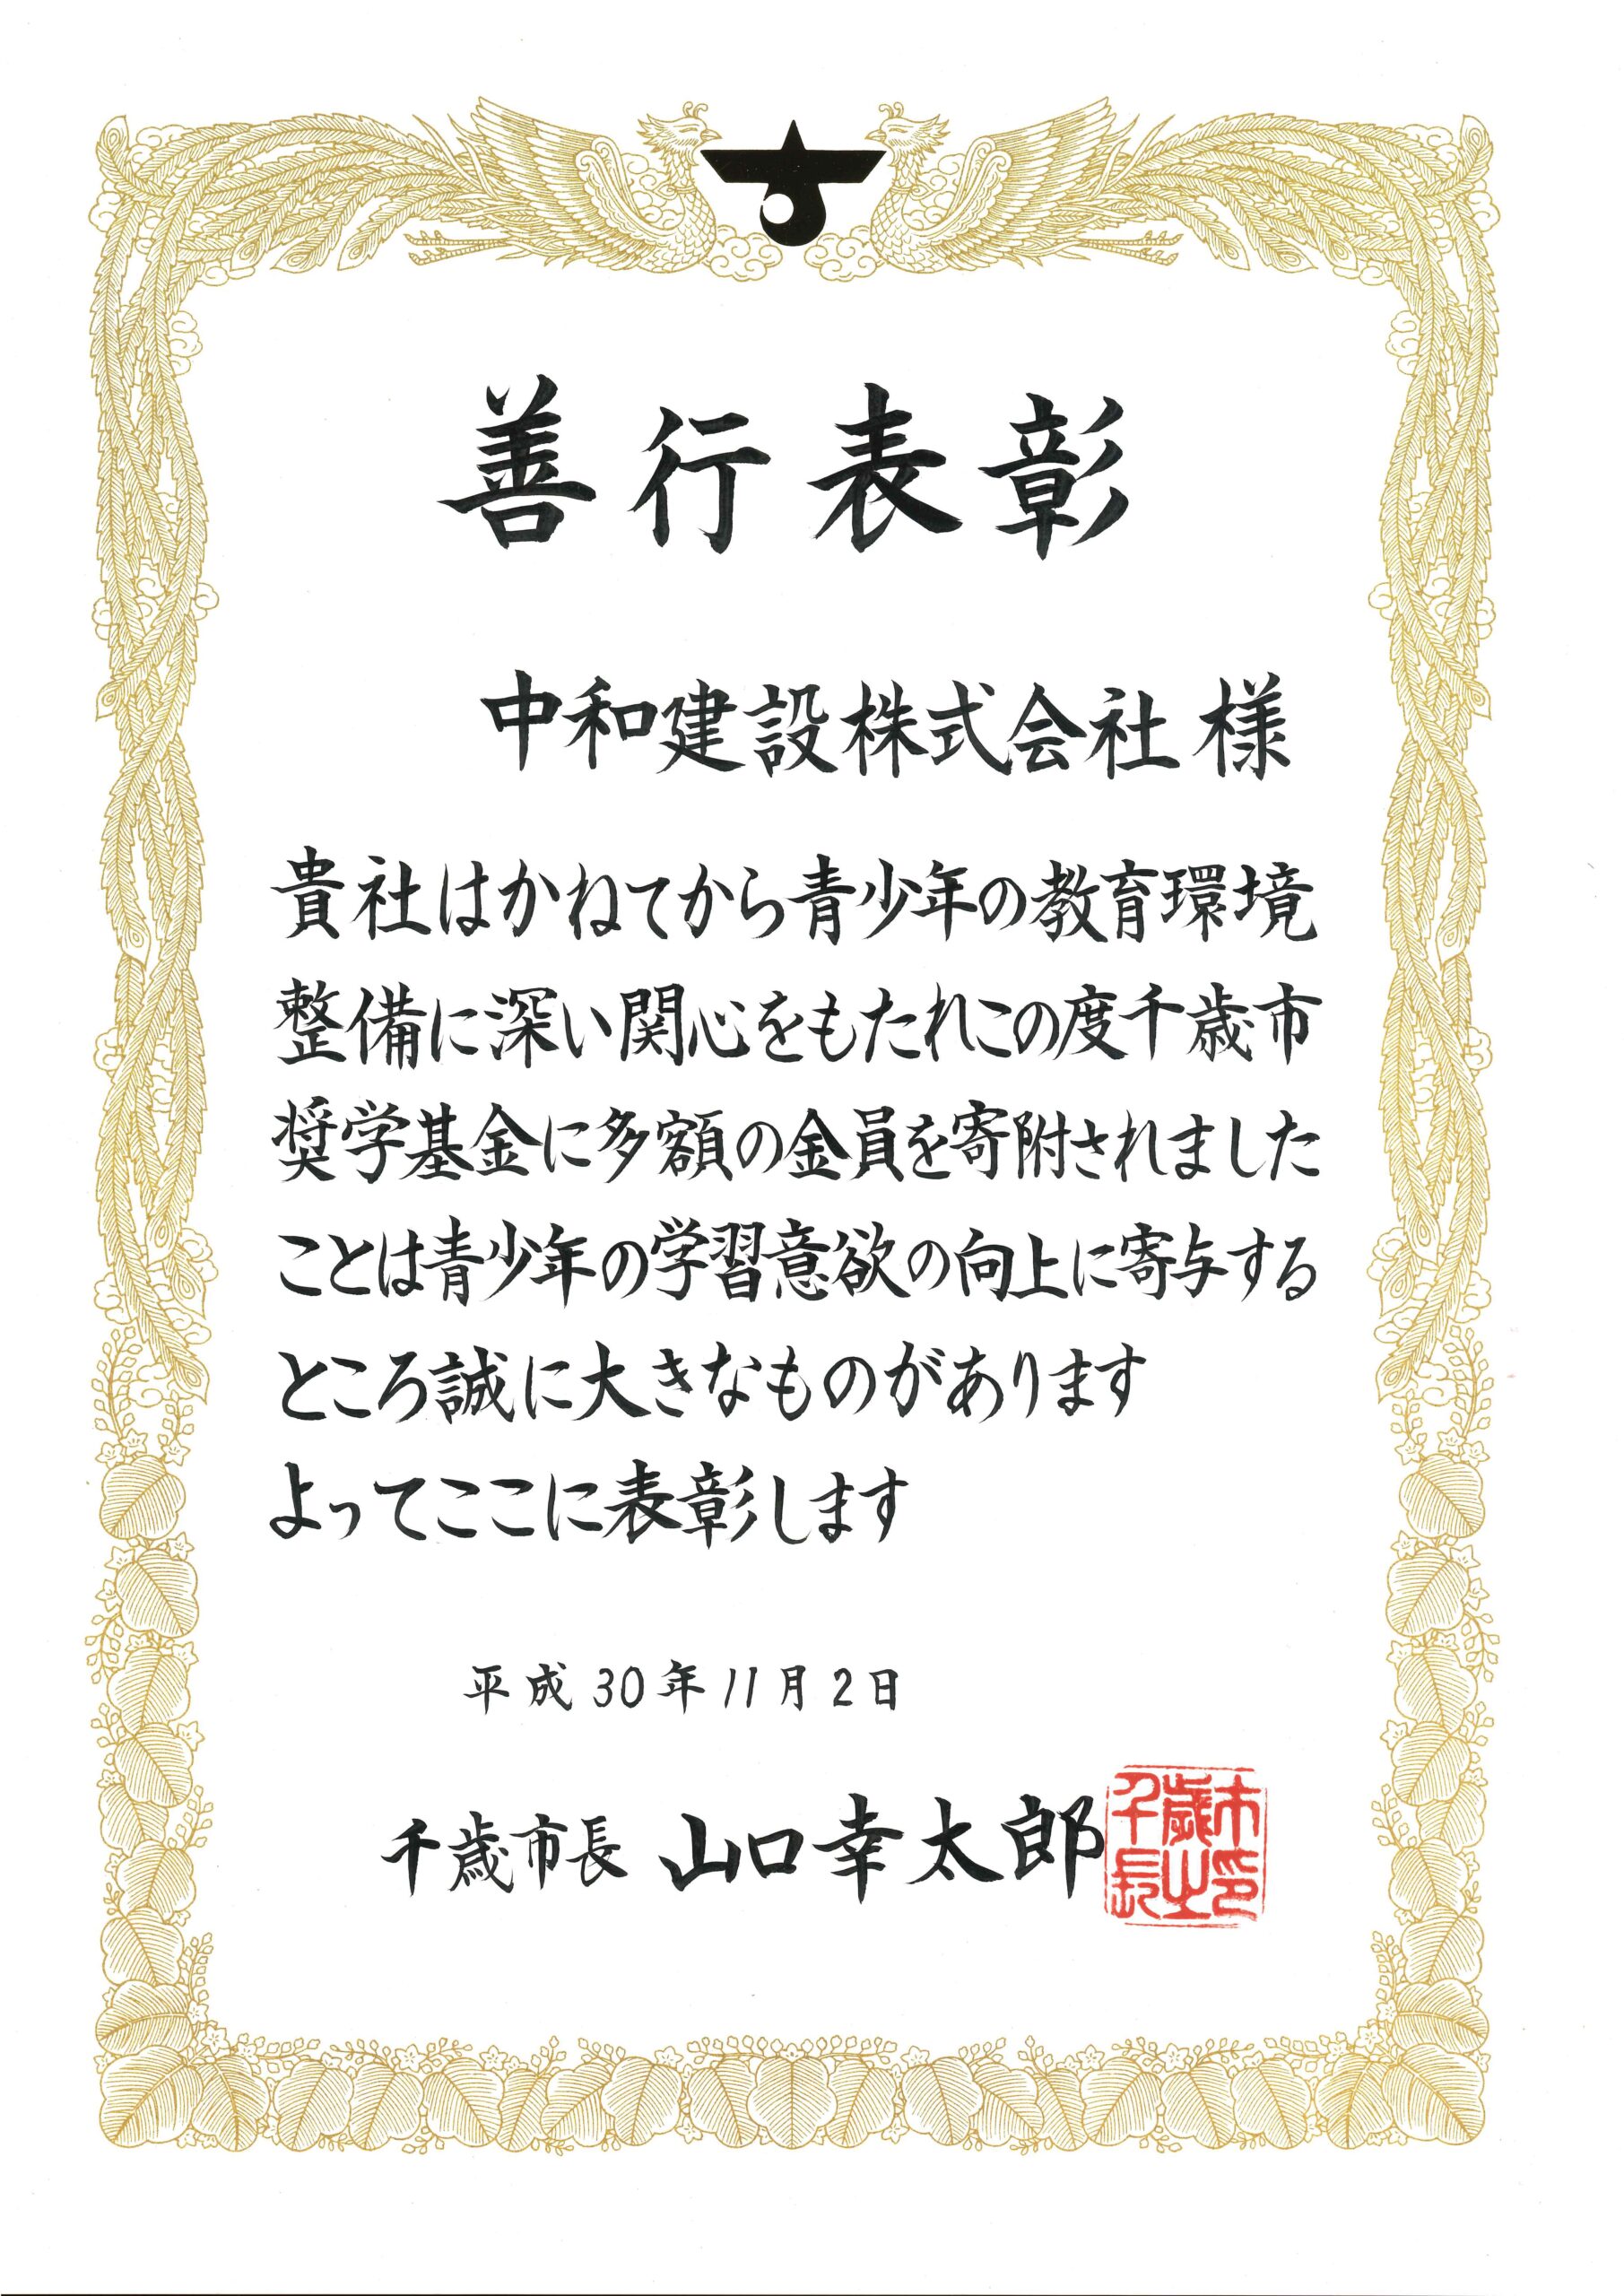 善行表彰
中和建設株式会社 様
貴社はかねてから青少年の教育環境
整備に深い関心をもたれこの度千歳市
奨学基金に多額の金員を寄附されました
ことは青少年の学習意欲の向上に寄与する
ところ誠に大きなものがあります
よってここに表彰します
平成30年11月2日
千歳市長 山口幸太郎
千歳市
長之印